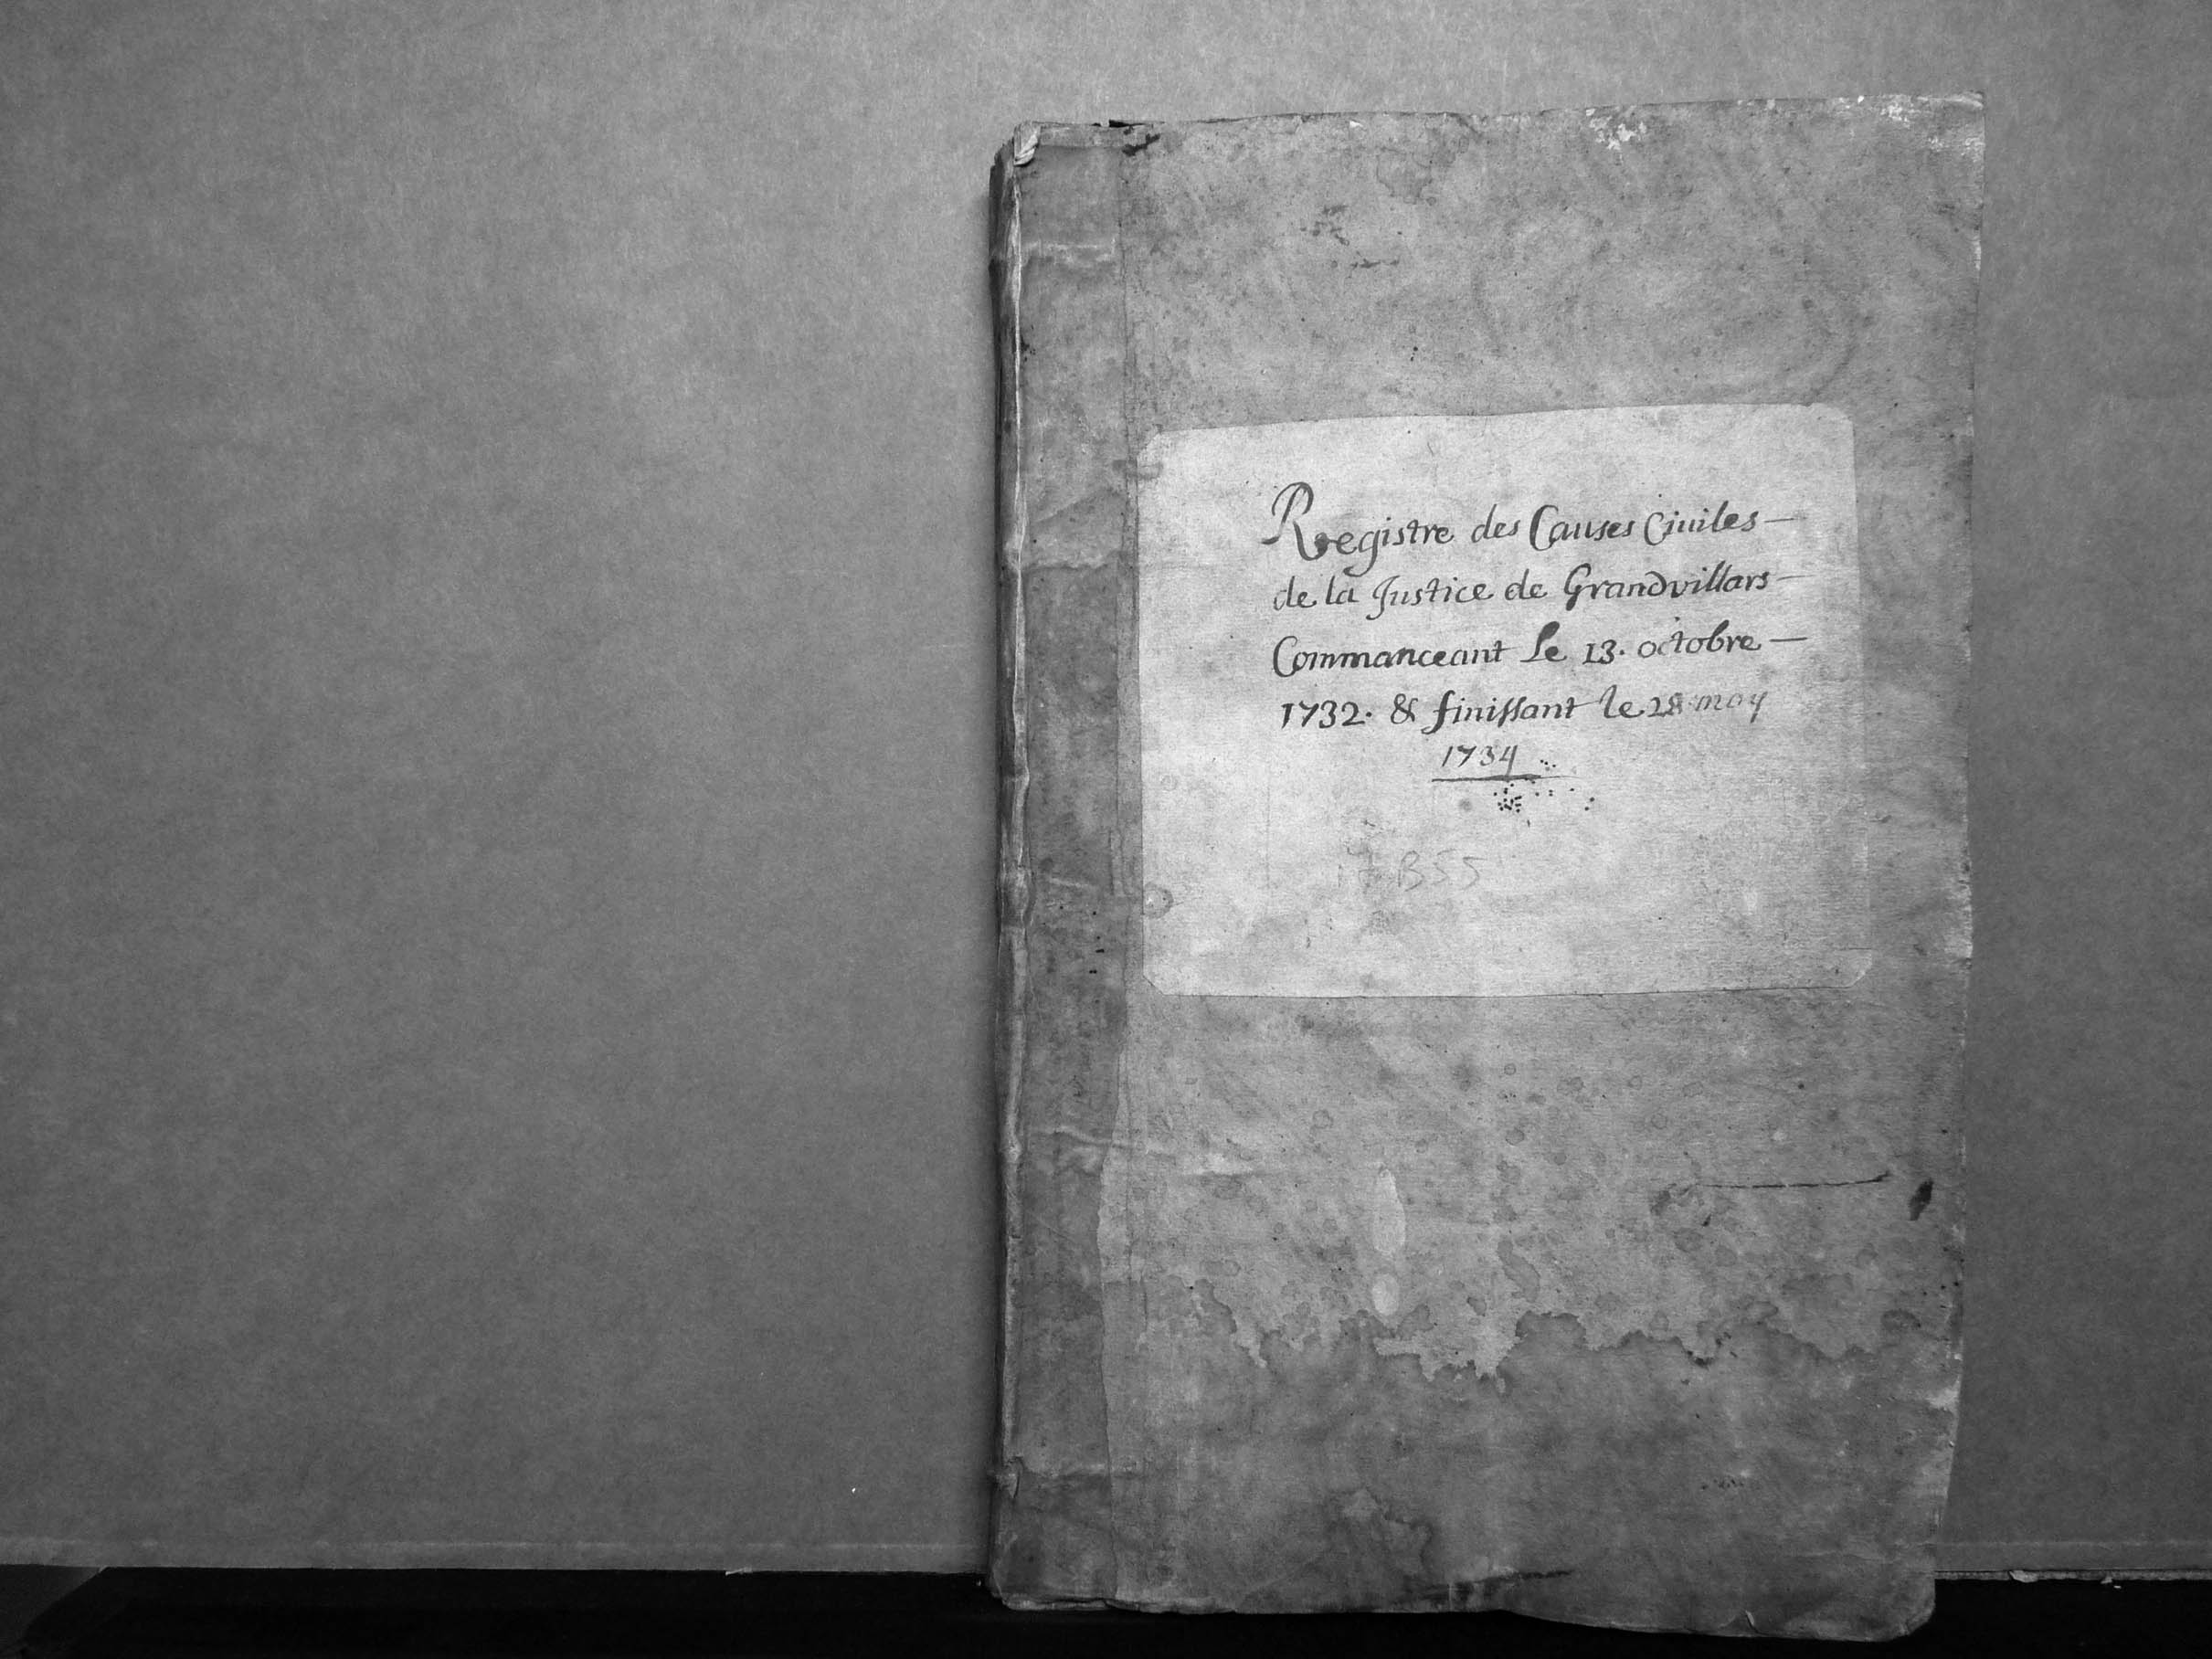 Registre des Causes Ciuiles —
de la Justice de Grandvillars —
Commanceant Le 13. octobre —
1732. & finissant le 28 may
1734
17 B55